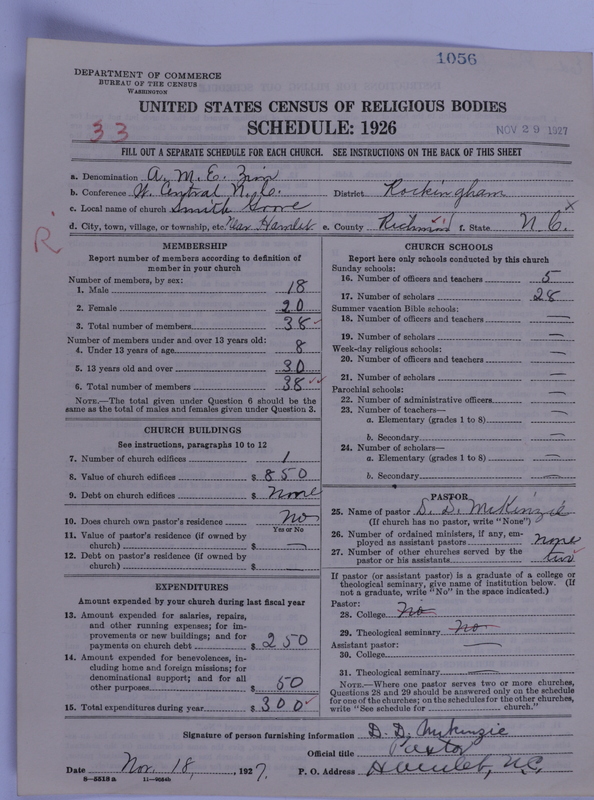 1056
DEPARTMENT OF COMMERCE
BUREAU OF THE CENSUS
WASHINGTON
UNITED STATES CENSUS OF RELIGIOUS BODIES
33
SCHEDULE: 1926
NOV 29 1927
FILL OUT A SEPARATE SCHEDULE FOR EACH CHURCH. SEE INSTRUCTIONS ON THE BACK OF THIS SHEET
a. Denomination A. M. E. Zion
b. Conference W. Central N. C. District Rockingham
c. Local name of church Smith Grove x
d. City, town, village, or township, etc. Near Hamlet e. County Richmond f. State N. C.
R
MEMBERSHIP
Report number of members according to definition of
member in your church
Number of members, by sex:
1. Male 18
2. Female 20
3. Total number of members 38
Number of members under and over 13 years old:
4. Under 13 years of age 8
5. 13 years old and over 30
6. Total number of members 38
NOTE.—The total given under Question 6 should be
the same as the total of males and females given under Question 3.
CHURCH BUILDINGS
See instructions, paragraphs 10 to 12
7. Number of church edifices 1
8. Value of church edifices $ 850
9. Debt on church edifices $ none
10. Does church own pastor's residence No
Yes or No
11. Value of pastor's residence (if owned by
church) $ —
12. Debt on pastor's residence (if owned by
church) $
EXPENDITURES
Amount expended by your church during last fiscal year
13. Amount expended for salaries, repairs,
and other running expenses; for im-
provements or new buildings; and for
payments on church debt $ 250
14. Amount expended for benevolences, in-
cluding home and foreign missions; for
denominational support; and for all
other purposes $ 50
15. Total expenditures during year $ 300
CHURCH SCHOOLS
Report here only schools conducted by this church
Sunday schools:
16. Number of officers and teachers 5
17. Number of scholars 28
Summer vacation Bible schools:
18. Number of officers and teachers —
19. Number of scholars —
Week-day religious schools:
20. Number of officers and teachers —
21. Number of scholars —
Parochial schools:
22. Number of administrative officers —
23. Number of teachers—
a. Elementary (grades 1 to 8) —
b. Secondary —
24. Number of scholars—
a. Elementary (grades 1 to 8) —
b. Secondary —
PASTOR
25. Name of pastor D. D. McKinzie
(If church has no pastor, write "None")
26. Number of ordained ministers, if any, em-
ployed as assistant pastors none
27. Number of other churches served by the
pastor or his assistants two
If pastor (or assistant pastor) is a graduate of a college or
theological seminary, give name of institution below. (If
not a graduate, write "No" in the space indicated.)
Pastor:
28. College No
29. Theological seminary No
Assistant pastor:
30. College
31. Theological seminary —
NOTE.—Where one pastor serves two or more churches,
Questions 28 and 29 should be answered only on the schedule
for one of the churches; on the schedules for the other churches,
write "See schedule for church."
Signature of person furnishing information D. D. McKinzie
Official title Pastor
Date Nov. 18, 1927. P. O. Address Hamlet, N.C.
8-5518a